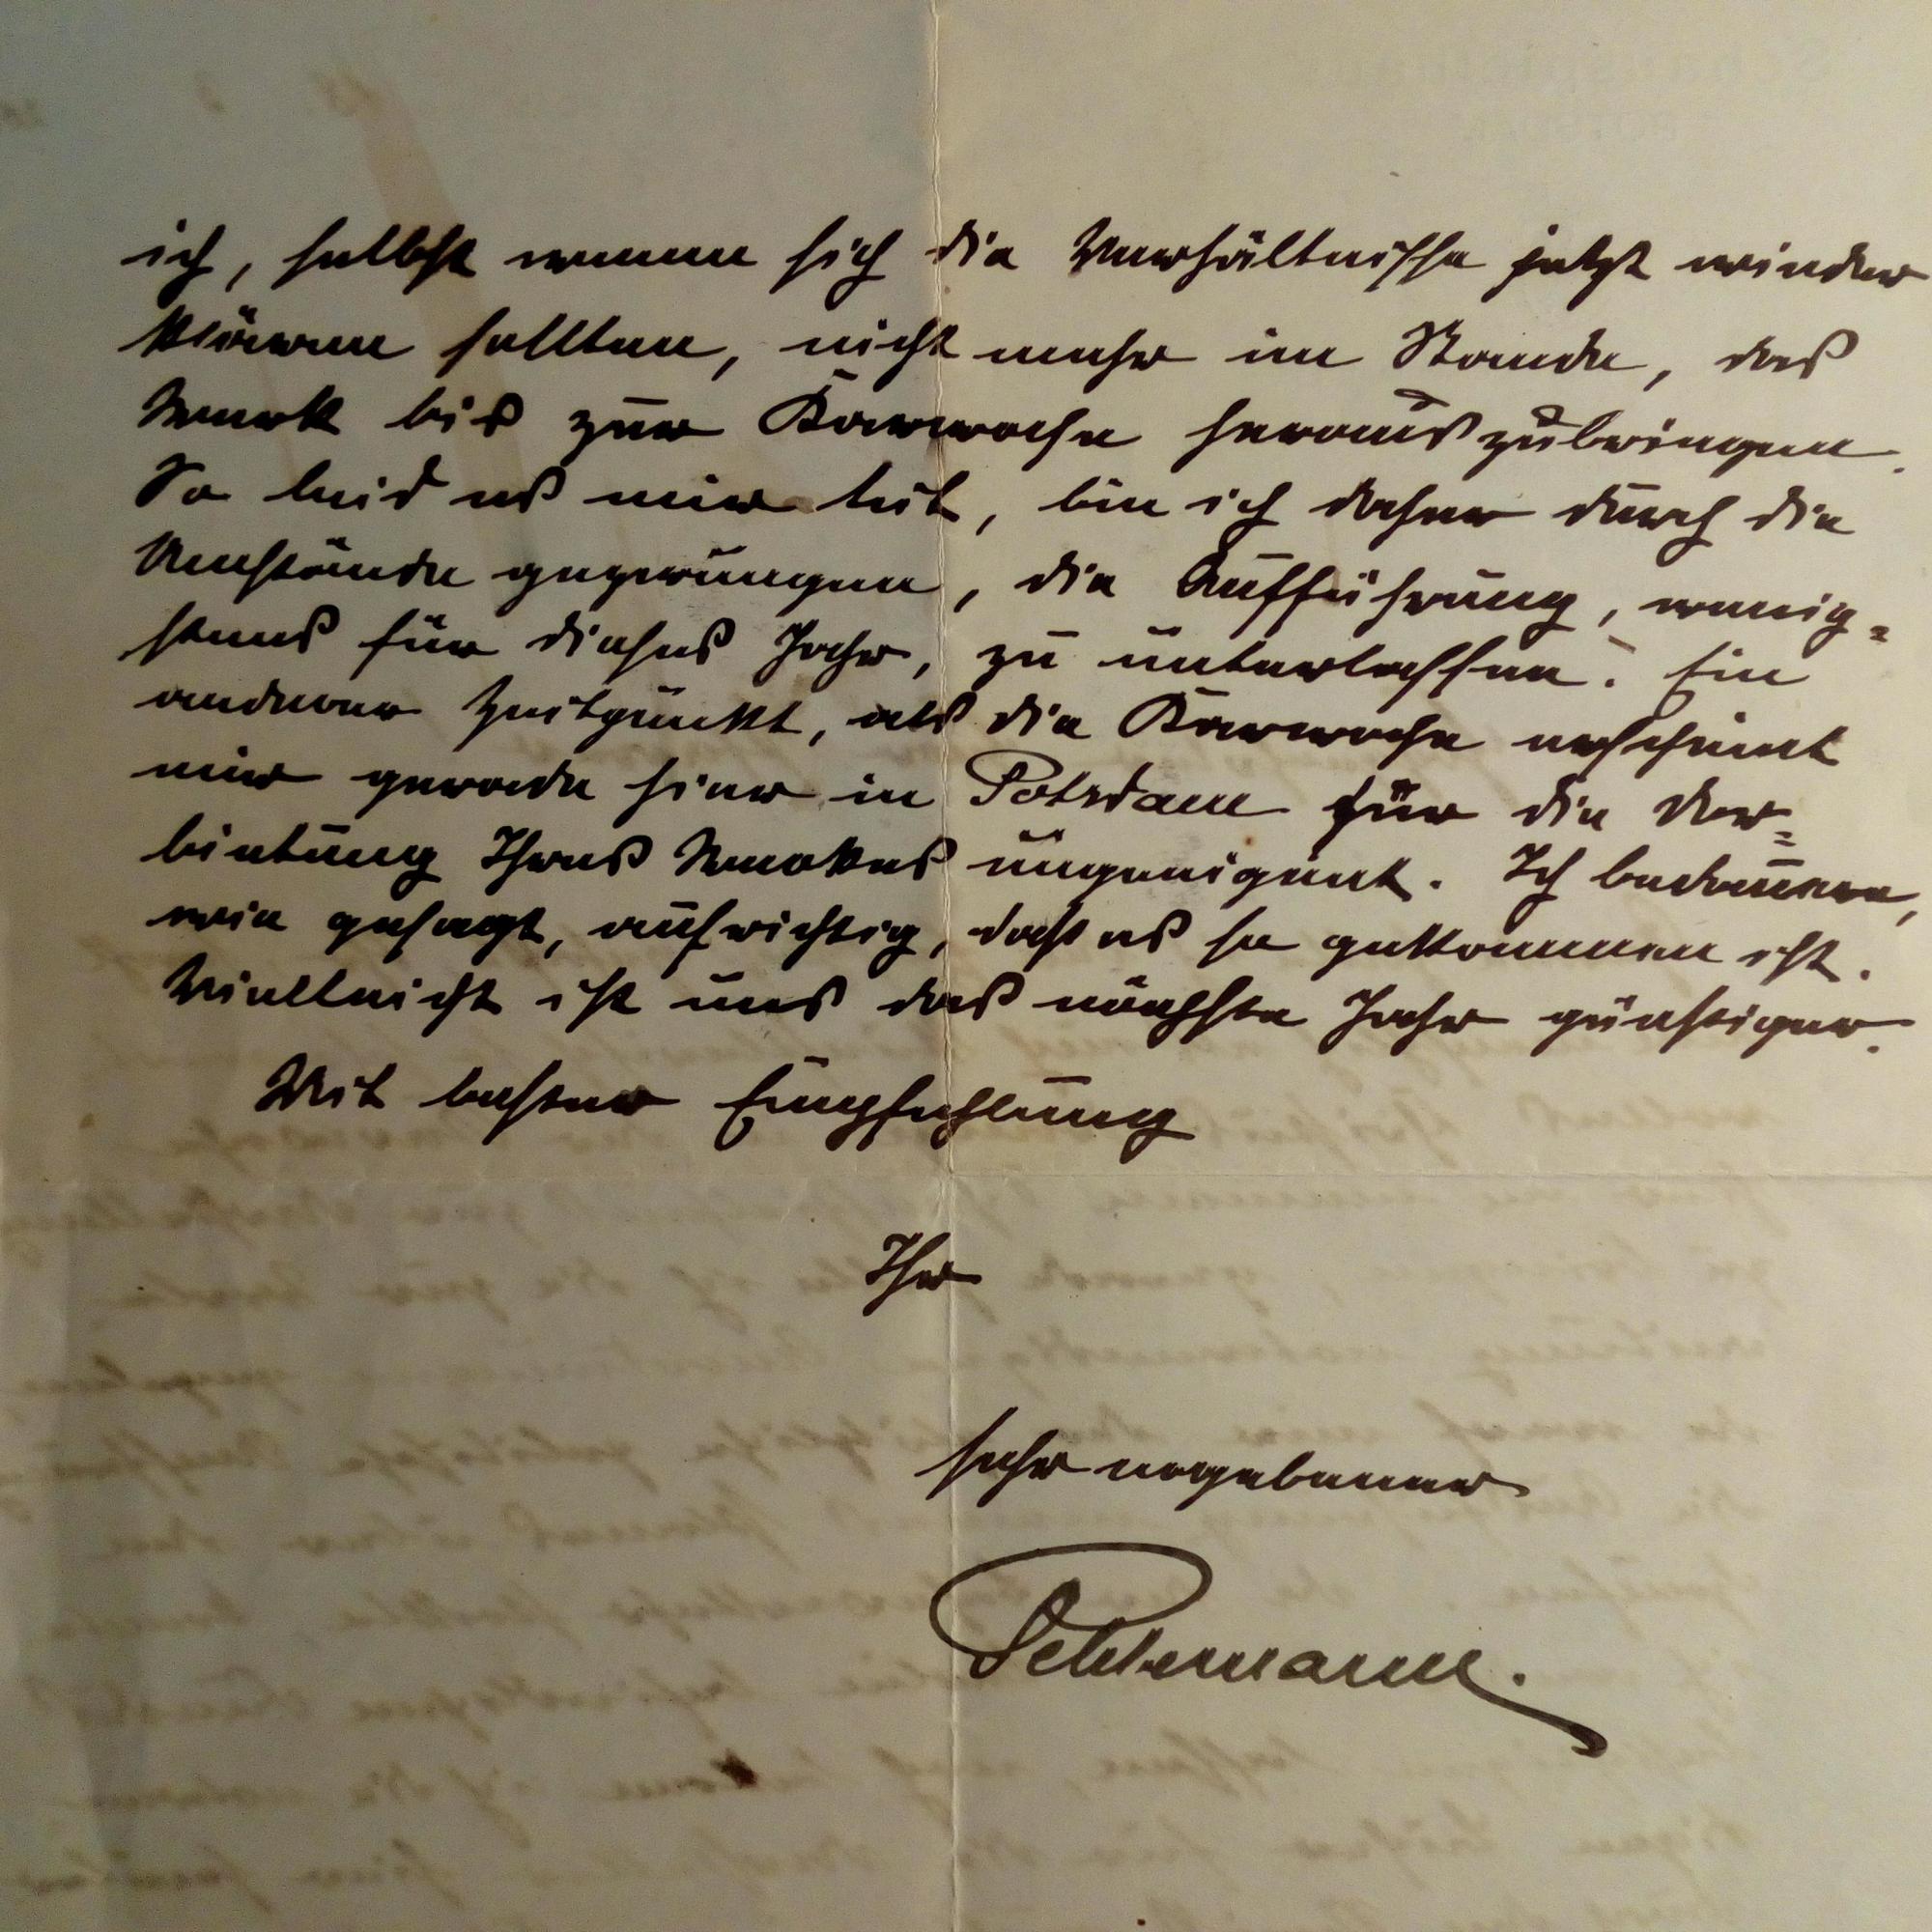 ich, selbst wenn sich die Verhältnisse jetzt wieder
klären sollten, nicht mehr im Stande, das
Werk bis zur Karwoche herauszubringen.
So leid es mir tut, bin ich daher durch die
Umstände gezwungen, die Aufführung, wenig=
stens für dieses Jahr, zu unterlassen. Ein
anderer Zeitpunkt, als die Karwoche erscheint
mir gerade hier in Potsdam für die Dar=
bietung Ihres Werkes ungeeignet. Ich bedauere,
wie gesagt, aufrichtig, daß es so gekommen ist.
Vielleicht ist uns das nächste Jahr günstiger.
Mit bester Empfehlung
Ihr
sehr ergebener